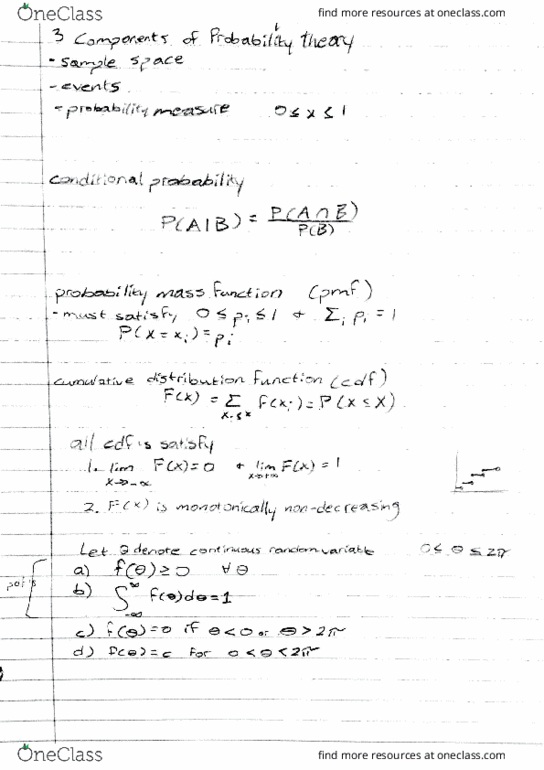 OneClass find more resources at oneclass.com
3 Components of Probability theory
- sample space
- events
- probability measure 0 ≤ x ≤ 1
conditional probability
P(A|B) = P(A∩B) / P(B)
probability mass function (pmf)
- must satisfy 0 ≤ pᵢ ≤ 1 + Σᵢ pᵢ = 1
P(X = xᵢ) = pᵢ
cumulative distribution function (cdf)
F(x) = Σ f(xᵢ) = P(X ≤ x)
xᵢ ≤ x
all cdf's satisfy
1. lim F(x) = 0 + lim F(x) = 1
x→-∞ x→+∞
2. F(x) is monotonically non-decreasing
Let Θ denote continuous random variable 0 ≤ θ ≤ 2π
a) f(θ) ≥ 0 ∀ θ
b) ∫_{-∞}^{∞} f(θ)dθ = 1
c) f(θ) = 0 if θ < 0 or θ > 2π
d) f(θ) = c for 0 < θ < 2π
OneClass find more resources at oneclass.com